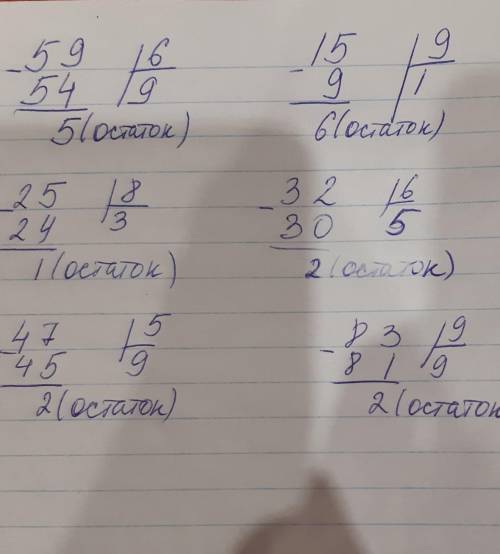 -59 | 6 -15 | 9
54 | 9 9 | 1
5 (остаток) 6 (остаток)
-25 | 8 -32 | 6
24 3 30 5
1 (остаток) 2 (остаток)
-47 | 5 -83 | 9
45 9 81 9
2 (остаток) 2 (остаток